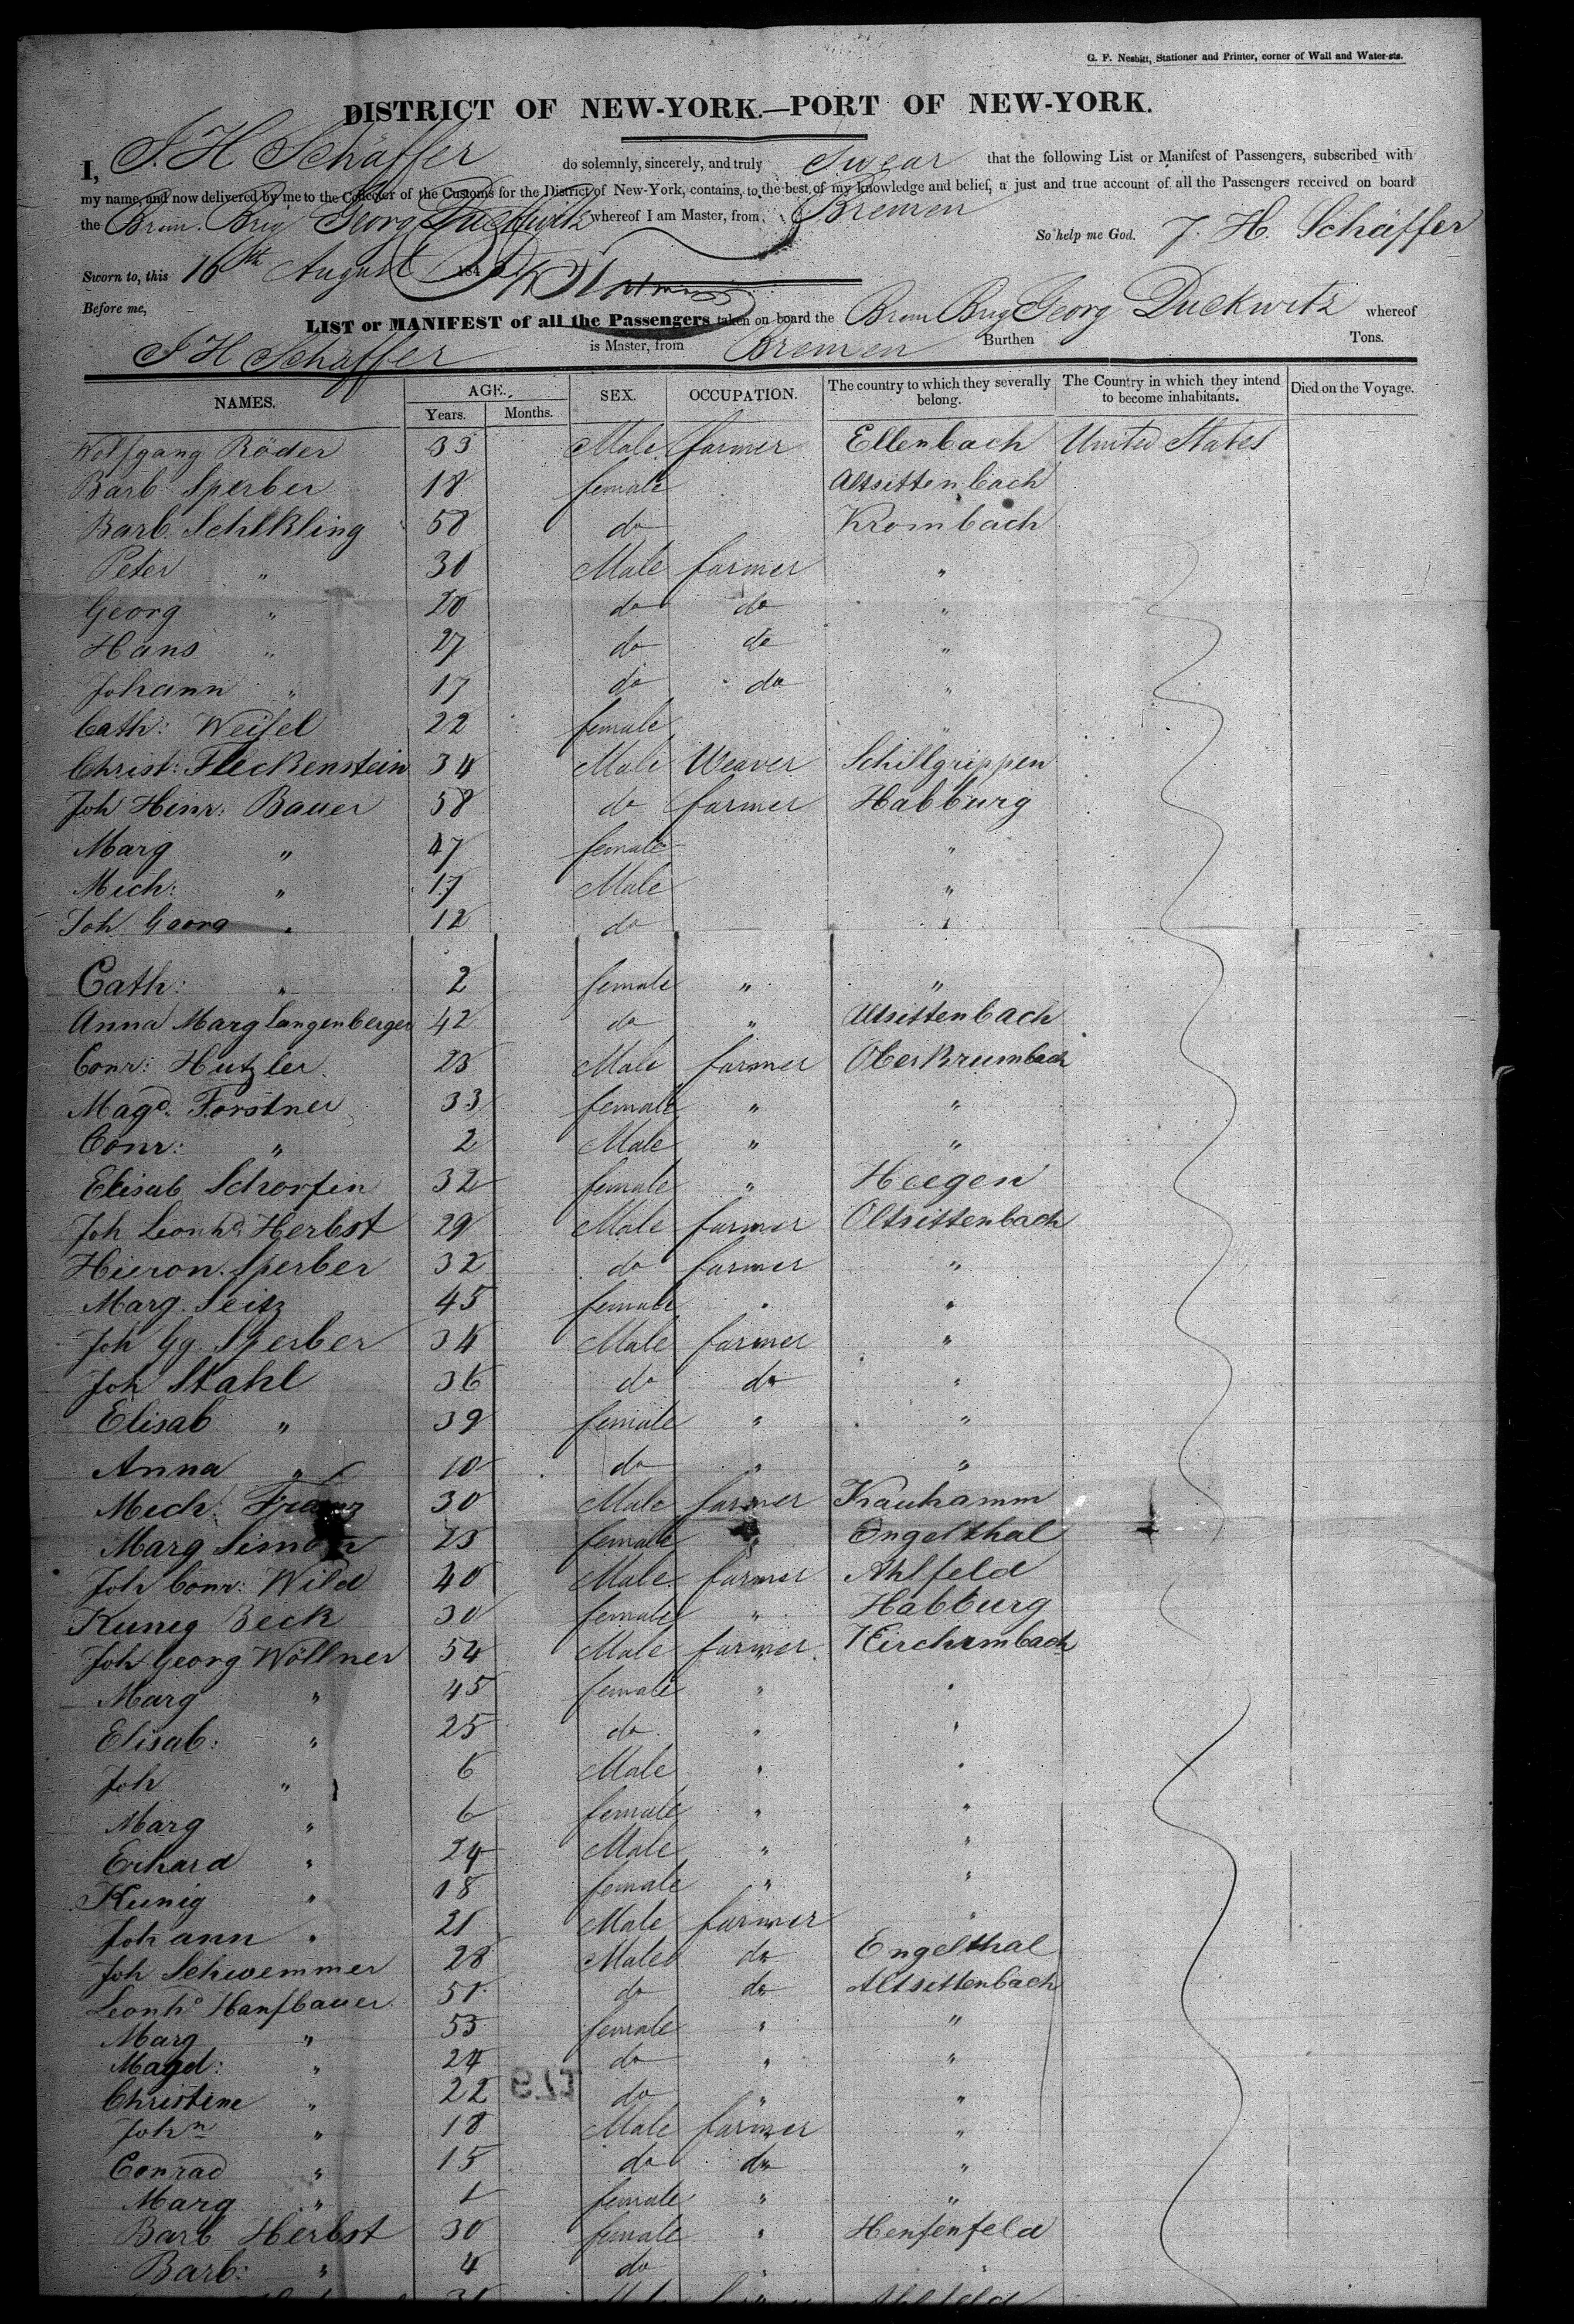 G. F. Nesbitt, Stationer and Printer, corner of Wall and Water-sts.
DISTRICT OF NEW-YORK.—PORT OF NEW-YORK.
I, J. H Schäffer do solemnly, sincerely, and truly Swear that the following List or Manifest of Passengers, subscribed with
my name, and now delivered by me to the Collector of the Customs for the District of New-York, contains, to the best of my knowledge and belief, a just and true account of all the Passengers received on board
the Brem. Brig Georg Duckwitz whereof I am Master, from Bremen
So help me God. J. H. Schäffer
Sworn to, this 16th August 184
Before me,
LIST or MANIFEST of all the Passengers taken on board the Brem Brig Georg Duckwitz whereof
J H Schäffer is Master, from Bremen Burthen Tons.
NAMES. AGE. SEX. OCCUPATION. The country to which they severally belong. The Country in which they intend to become inhabitants. Died on the Voyage.
Years. Months.
Wolfgang Röder 33 Male farmer Ellenbach United States
Barb Sperber 18 female Altsittenbach
Barb. Schikling 58 do Krombach
Peter " 30 Male farmer "
Georg " 20 do do "
Hans " 27 do do "
Johann " 17 do do "
Cath: Weisel 22 female "
Christ: Fleckenstein 34 Male Weaver Schillgrippen
Joh Hinr: Bauer 58 do farmer Habburg
Marg " 47 female "
Mich: " 17 Male "
Joh Georg " 12 do "
Cath: " 2 female " "
Anna Marg Langenberger 42 do " Altsittenbach
Conr: Hutzler 23 Male farmer Ober Krumbach
Magd. Forstner 33 female " "
Conr: " 2 Male " "
Elisab Schorfin 32 female " Heegen
Joh Leonhd Herbst 29 Male farmer Oltsittenbach
Hieron. Sperber 32 do farmer "
Marg. Seitz 45 female " "
Joh Gg. Sperber 34 Male farmer "
Joh Stahl 36 do do "
Elisab " 39 female " "
Anna " 10 do " "
Mich: Franz 30 Male farmer Kauhamm
Marg Simon 23 female " Engelthal
Joh Conr: Wild 40 Male farmer Ahlfeld
Kunig Beck 30 female " Habburg
Joh Georg Wöllner 54 Male farmer Kirchrmbach
Marg " 45 female " "
Elisab: " 25 do " "
Joh " 6 Male " "
Marg " 6 female " "
Erhard " 24 Male " "
Kunig " 18 female " "
Johann " 21 Male farmer "
Joh Schwemmer 28 Male do Engelthal
Leonhd Hanfbauer 51 do do Altsittenbach
Marg " 53 female " "
Magd: " 24 do " "
Christine " 22 do " "
John " 18 Male farmer "
Conrad " 15 do do "
Marg " 1 female " "
Barb Herbst 30 female " Henfenfeld
Barb: " 4 do " "